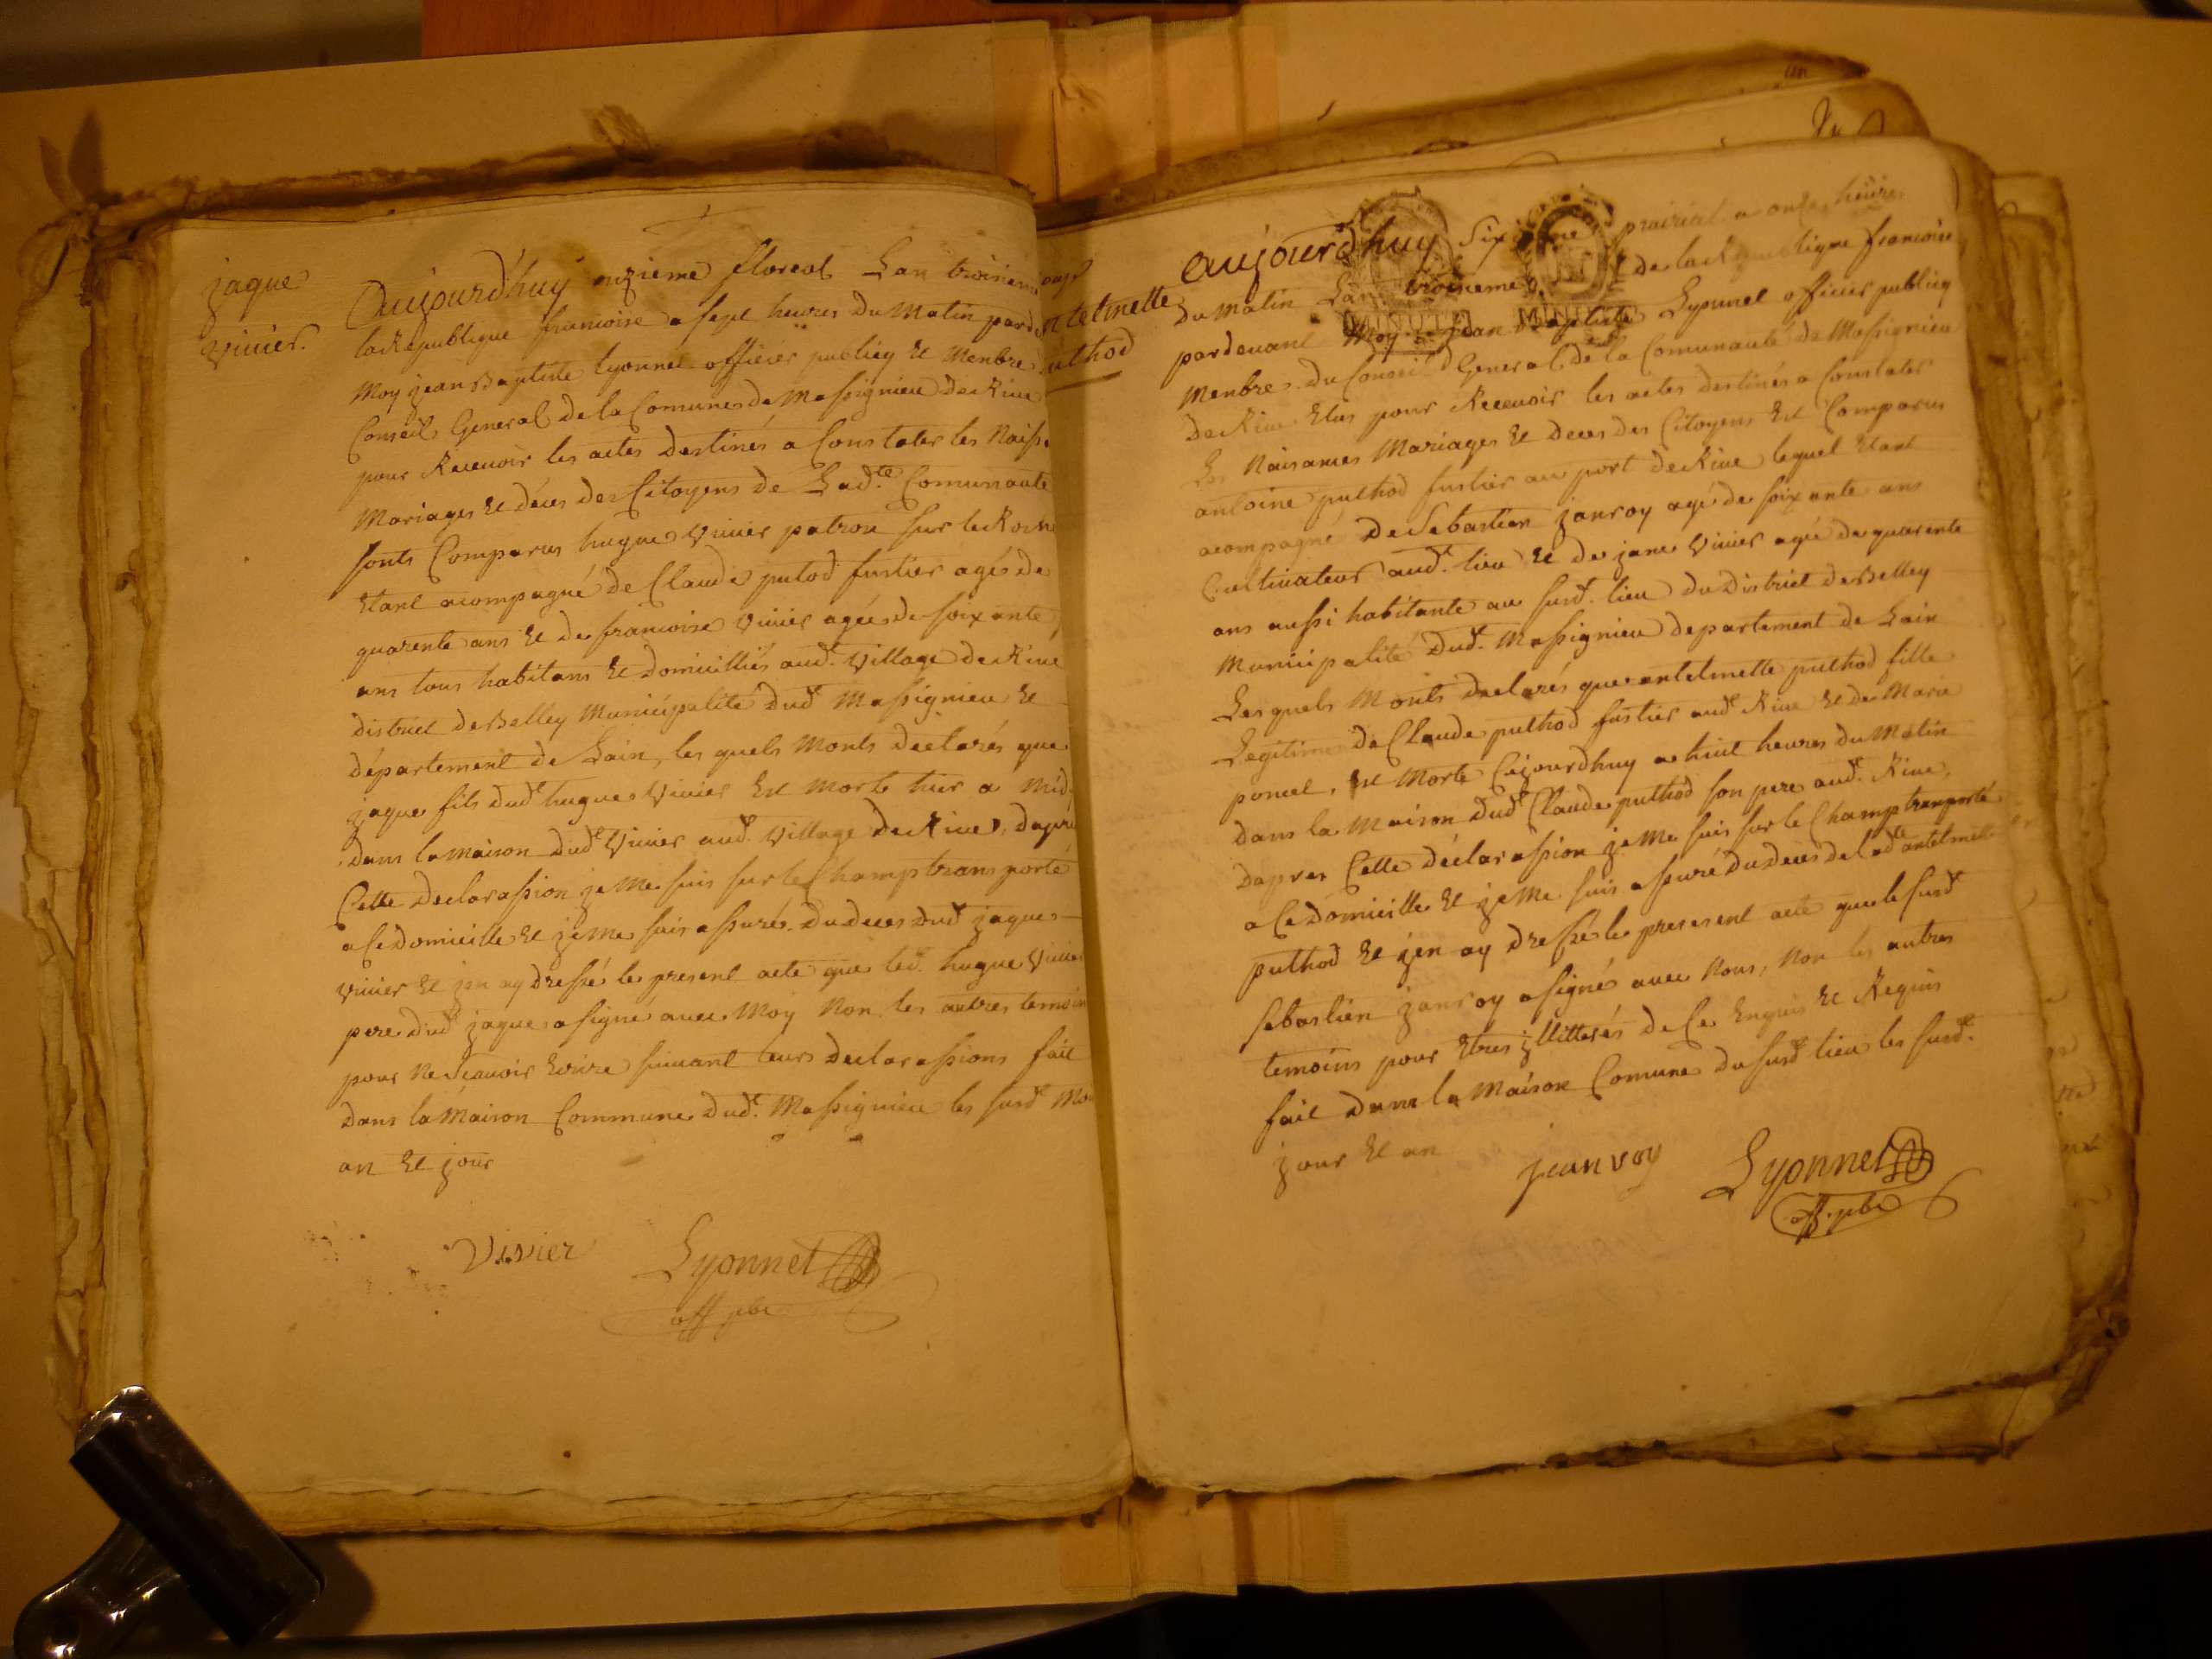 jaque
vivier.
Aujourd'huy onzieme floreal Lan troisieme
la Republique francoise a sept heures du Matin parde
Moy jean Baptiste lyonnet officier publicq et Menbre
Conseil General de la Comune de Massignieu de Rive
pour Recevoir les actes destinés a Constater les Naiss
Mariages et déces des Citoyens de Ladte. Comunauté
sonts Comparus hugue vivier patron sur le Rosne
Etant acompagné de Claude putod fustier agé de
quarente ans et de francoise vivier agée de soixante
ans tous habitans et domicilliés aud. village de Rive
district de Belley Municipalité dud Massignieu et
département de Lain, les quels Monts declarés que
jaque fils dud hugue vivier Est Morte hier a Mid
dans la Maison dud vivier aud. village de Rive, dapre
Cette declarassion je Me suis sur le Champ transporté
a Ce domicille et je Me suis assurés du deces dud jaque
vivier et jen ay dressé le present acte que led. hugue vivie
pere dud jaque a signé avec Moy Non les autres temoin
pour Ne scavoir Ecrire suivant leurs declarassions fait
dans la Maison Commune dud. Massignieu les susd Moi
an et jour
Vivier Lyonnet
off pbc
antelmette
puthod
aujourdhuy sixieme prairial a onze heures
du Matin Lan troisieme de la Republique francoise
MINUTE MINUTE
pardevant Moy jean Baptiste Lyonnet officier publicq
Menbre du Conseil General de la Comunauté de Massignieu
de Rive Elus pour Recevoir les actes destinés a Constater
Les Naisances Mariages et deces des Citoyens Est Comparus
antoine puthod fustier au port de Rive lequel Etant
acompagné de Sebastien janroy agé de soixante ans
Cultivateur aud. lieu et de jane vivier agée de quarente
ans aussi habitante au susd. lieu du district de Belley
Municipalité dud. Massignieu departement de Lain
Lesquels Monts declarés que antelmette puthod fille
Legitime de Claude puthod fustier aud Rive et de Marie
poncet, Est Morte Cejourdhuy a huit heures du Matin
dans la Maison dud Claude puthod son pere aud. Rive,
dapres Cette déclarassion je Me suis sur le Champ tranporté
a Ce domicille et je Me suis assuré du deces de ladte antelmette
puthod et jen ay dressé le present acte que le susd
sebastien janroy a signé avec Nous, Non les autres
temoins pour Etres jllitterés de Ce Enquis et Requis
fait dans la Maison Comune du susd lieu les susd.
jour et an
jeanroy Lyonnet
off. pbc